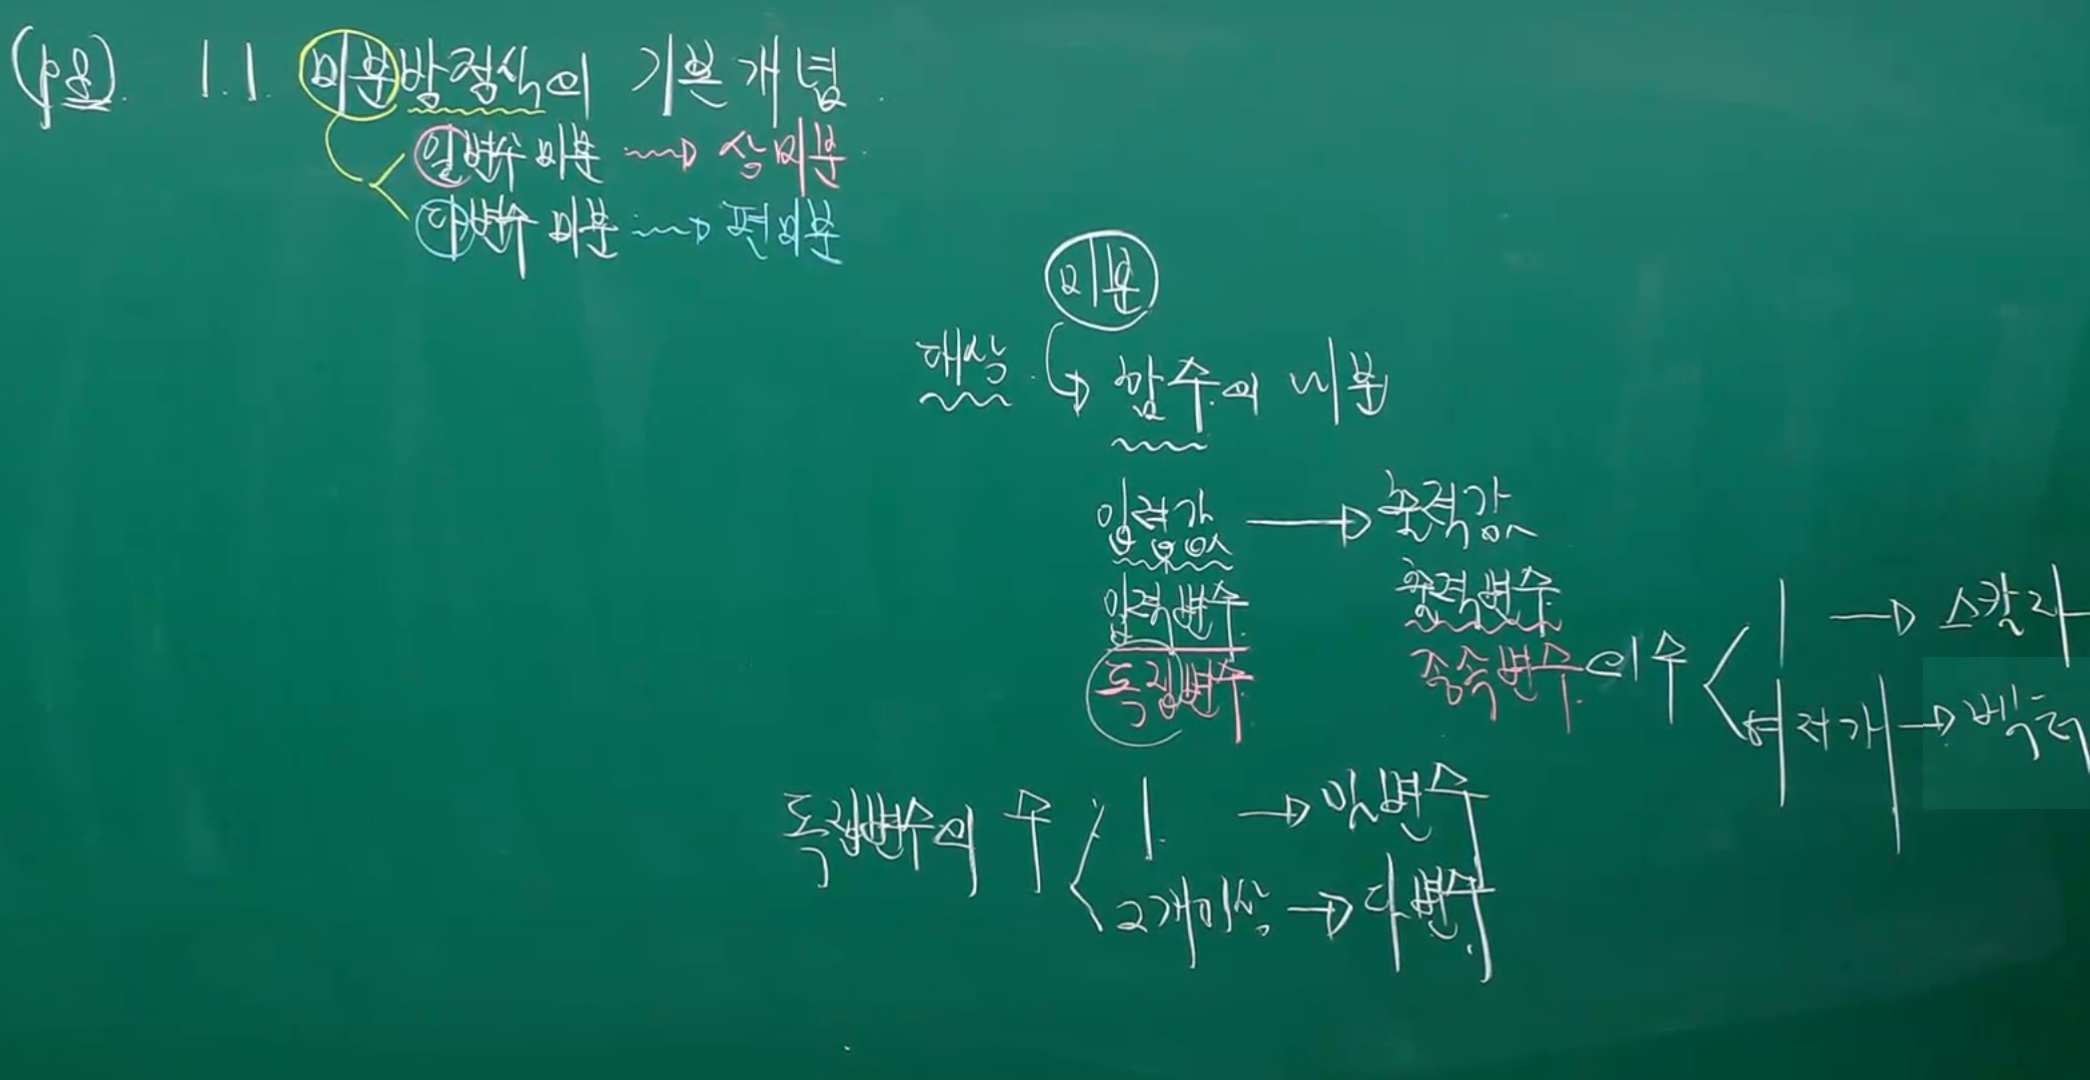 (p8). 1.1. 미분방정식의 기본개념.
일변수 미분 → 상미분.
다변수 미분 → 편미분
미분
대상. → 함수의 미분
입력값 → 출력값
입력변수 출력변수
독립변수 종속변수의 수 < 1 → 스칼라
여러개 → 벡터
독립변수의 수 < 1. → 일변수
2개이상 → 다변수.